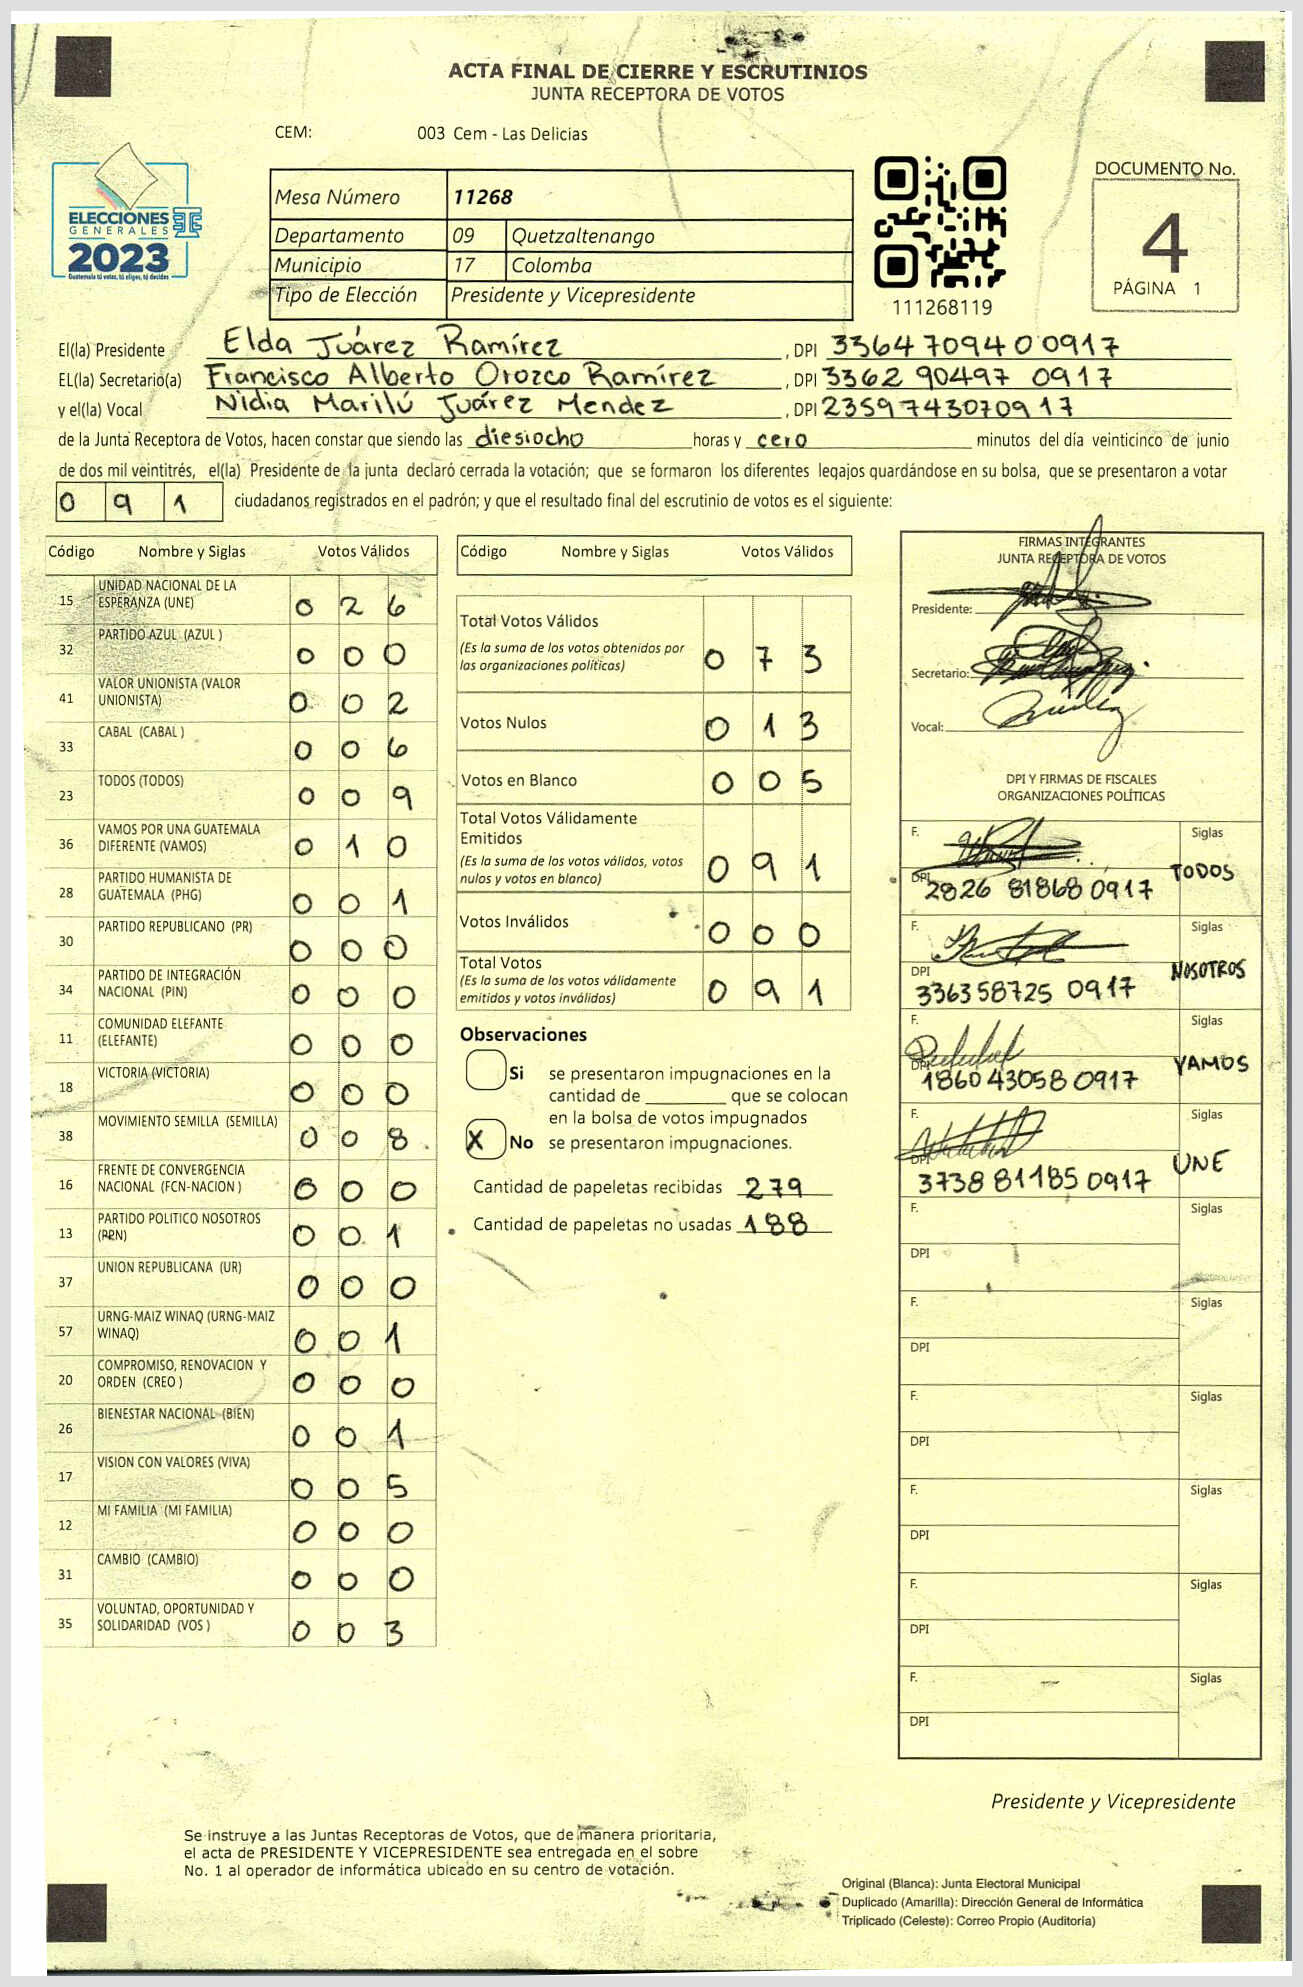 ACTA FINAL DE CIERRE Y ESCRUTINIOS
JUNTA RECEPTORA DE VOTOS
CEM: 003 Cem - Las Delicias
ELECCIONES
GENERALES
2023
Guatemala tú votas, tú eliges, tú decides
Mesa Número 11268
Departamento 09 Quetzaltenango
Municipio 17 Colomba
Tipo de Elección Presidente y Vicepresidente
111268119
DOCUMENTO No.
4
PÁGINA 1
El(la) Presidente Elda Juárez Ramírez , DPI 3364 70940 0917
EL(la) Secretario(a) Francisco Alberto Orozco Ramírez , DPI 3362 90497 0917
y el(la) Vocal Nidia Marilú Juárez Mendez , DPI 2359743070917
de la Junta Receptora de Votos, hacen constar que siendo las diesiocho horas y cero minutos del día veinticinco de junio
de dos mil veintitrés, el(la) Presidente de la junta declaró cerrada la votación; que se formaron los diferentes legajos guardándose en su bolsa, que se presentaron a votar
0 9 1 ciudadanos registrados en el padrón; y que el resultado final del escrutinio de votos es el siguiente:
Código Nombre y Siglas Votos Válidos
15 UNIDAD NACIONAL DE LA
ESPERANZA (UNE) 0 2 6
32 PARTIDO AZUL (AZUL ) 0 0 0
41 VALOR UNIONISTA (VALOR
UNIONISTA) 0 0 2
33 CABAL (CABAL ) 0 0 6
23 TODOS (TODOS) 0 0 9
36 VAMOS POR UNA GUATEMALA
DIFERENTE (VAMOS) 0 1 0
28 PARTIDO HUMANISTA DE
GUATEMALA (PHG) 0 0 1
30 PARTIDO REPUBLICANO (PR) 0 0 0
34 PARTIDO DE INTEGRACIÓN
NACIONAL (PIN) 0 0 0
11 COMUNIDAD ELEFANTE
(ELEFANTE) 0 0 0
18 VICTORIA (VICTORIA) 0 0 0
38 MOVIMIENTO SEMILLA (SEMILLA) 0 0 8
16 FRENTE DE CONVERGENCIA
NACIONAL (FCN-NACION ) 0 0 0
13 PARTIDO POLITICO NOSOTROS
(PPN) 0 0 1
37 UNION REPUBLICANA (UR) 0 0 0
57 URNG-MAIZ WINAQ (URNG-MAIZ
WINAQ) 0 0 1
20 COMPROMISO, RENOVACION Y
ORDEN (CREO ) 0 0 0
26 BIENESTAR NACIONAL (BIEN) 0 0 1
17 VISION CON VALORES (VIVA) 0 0 5
12 MI FAMILIA (MI FAMILIA) 0 0 0
31 CAMBIO (CAMBIO) 0 0 0
35 VOLUNTAD, OPORTUNIDAD Y
SOLIDARIDAD (VOS ) 0 0 3
Código Nombre y Siglas Votos Válidos
Total Votos Válidos
(Es la suma de los votos obtenidos por
las organizaciones políticas) 0 7 3
Votos Nulos 0 1 3
Votos en Blanco 0 0 5
Total Votos Válidamente
Emitidos
(Es la suma de los votos válidos, votos
nulos y votos en blanco) 0 9 1
Votos Inválidos 0 0 0
Total Votos
(Es la suma de los votos válidamente
emitidos y votos inválidos) 0 9 1
Observaciones
Si se presentaron impugnaciones en la
cantidad de ________ que se colocan
en la bolsa de votos impugnados
X No se presentaron impugnaciones.
Cantidad de papeletas recibidas 279
Cantidad de papeletas no usadas 188
FIRMAS INTEGRANTES
JUNTA RECEPTORA DE VOTOS
Presidente:
Secretario:
Vocal:
DPI Y FIRMAS DE FISCALES
ORGANIZACIONES POLÍTICAS
F. Siglas
DPI 2826 81868 0917 TODOS
F. Siglas
DPI 336358725 0917 NOSOTROS
F. Siglas
DPI 1860 43058 0917 VAMOS
F. Siglas
DPI 3738 81185 0917 UNE
F. Siglas
DPI
F. Siglas
DPI
F. Siglas
DPI
F. Siglas
DPI
F. Siglas
DPI
F. Siglas
DPI
Presidente y Vicepresidente
Se instruye a las Juntas Receptoras de Votos, que de manera prioritaria,
el acta de PRESIDENTE Y VICEPRESIDENTE sea entregada en el sobre
No. 1 al operador de informática ubicado en su centro de votación.
Original (Blanca): Junta Electoral Municipal
Duplicado (Amarilla): Dirección General de Informática
Triplicado (Celeste): Correo Propio (Auditoría)